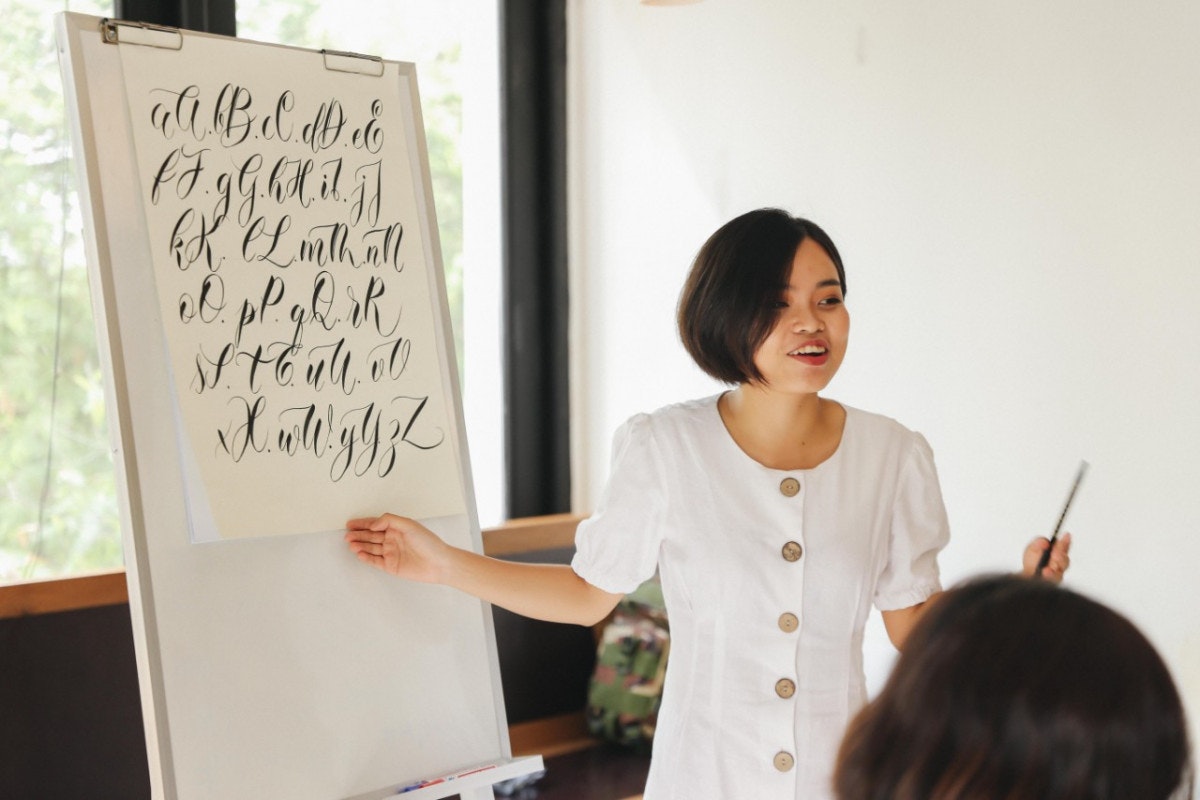 aA.bB.cC.dD.eE
fF.gG.hH.iI.jJ
kK. lL.mM.nN
oO.pP.qQ.rR
sS.tT.uU.vV
xX.wW.yY.zZ